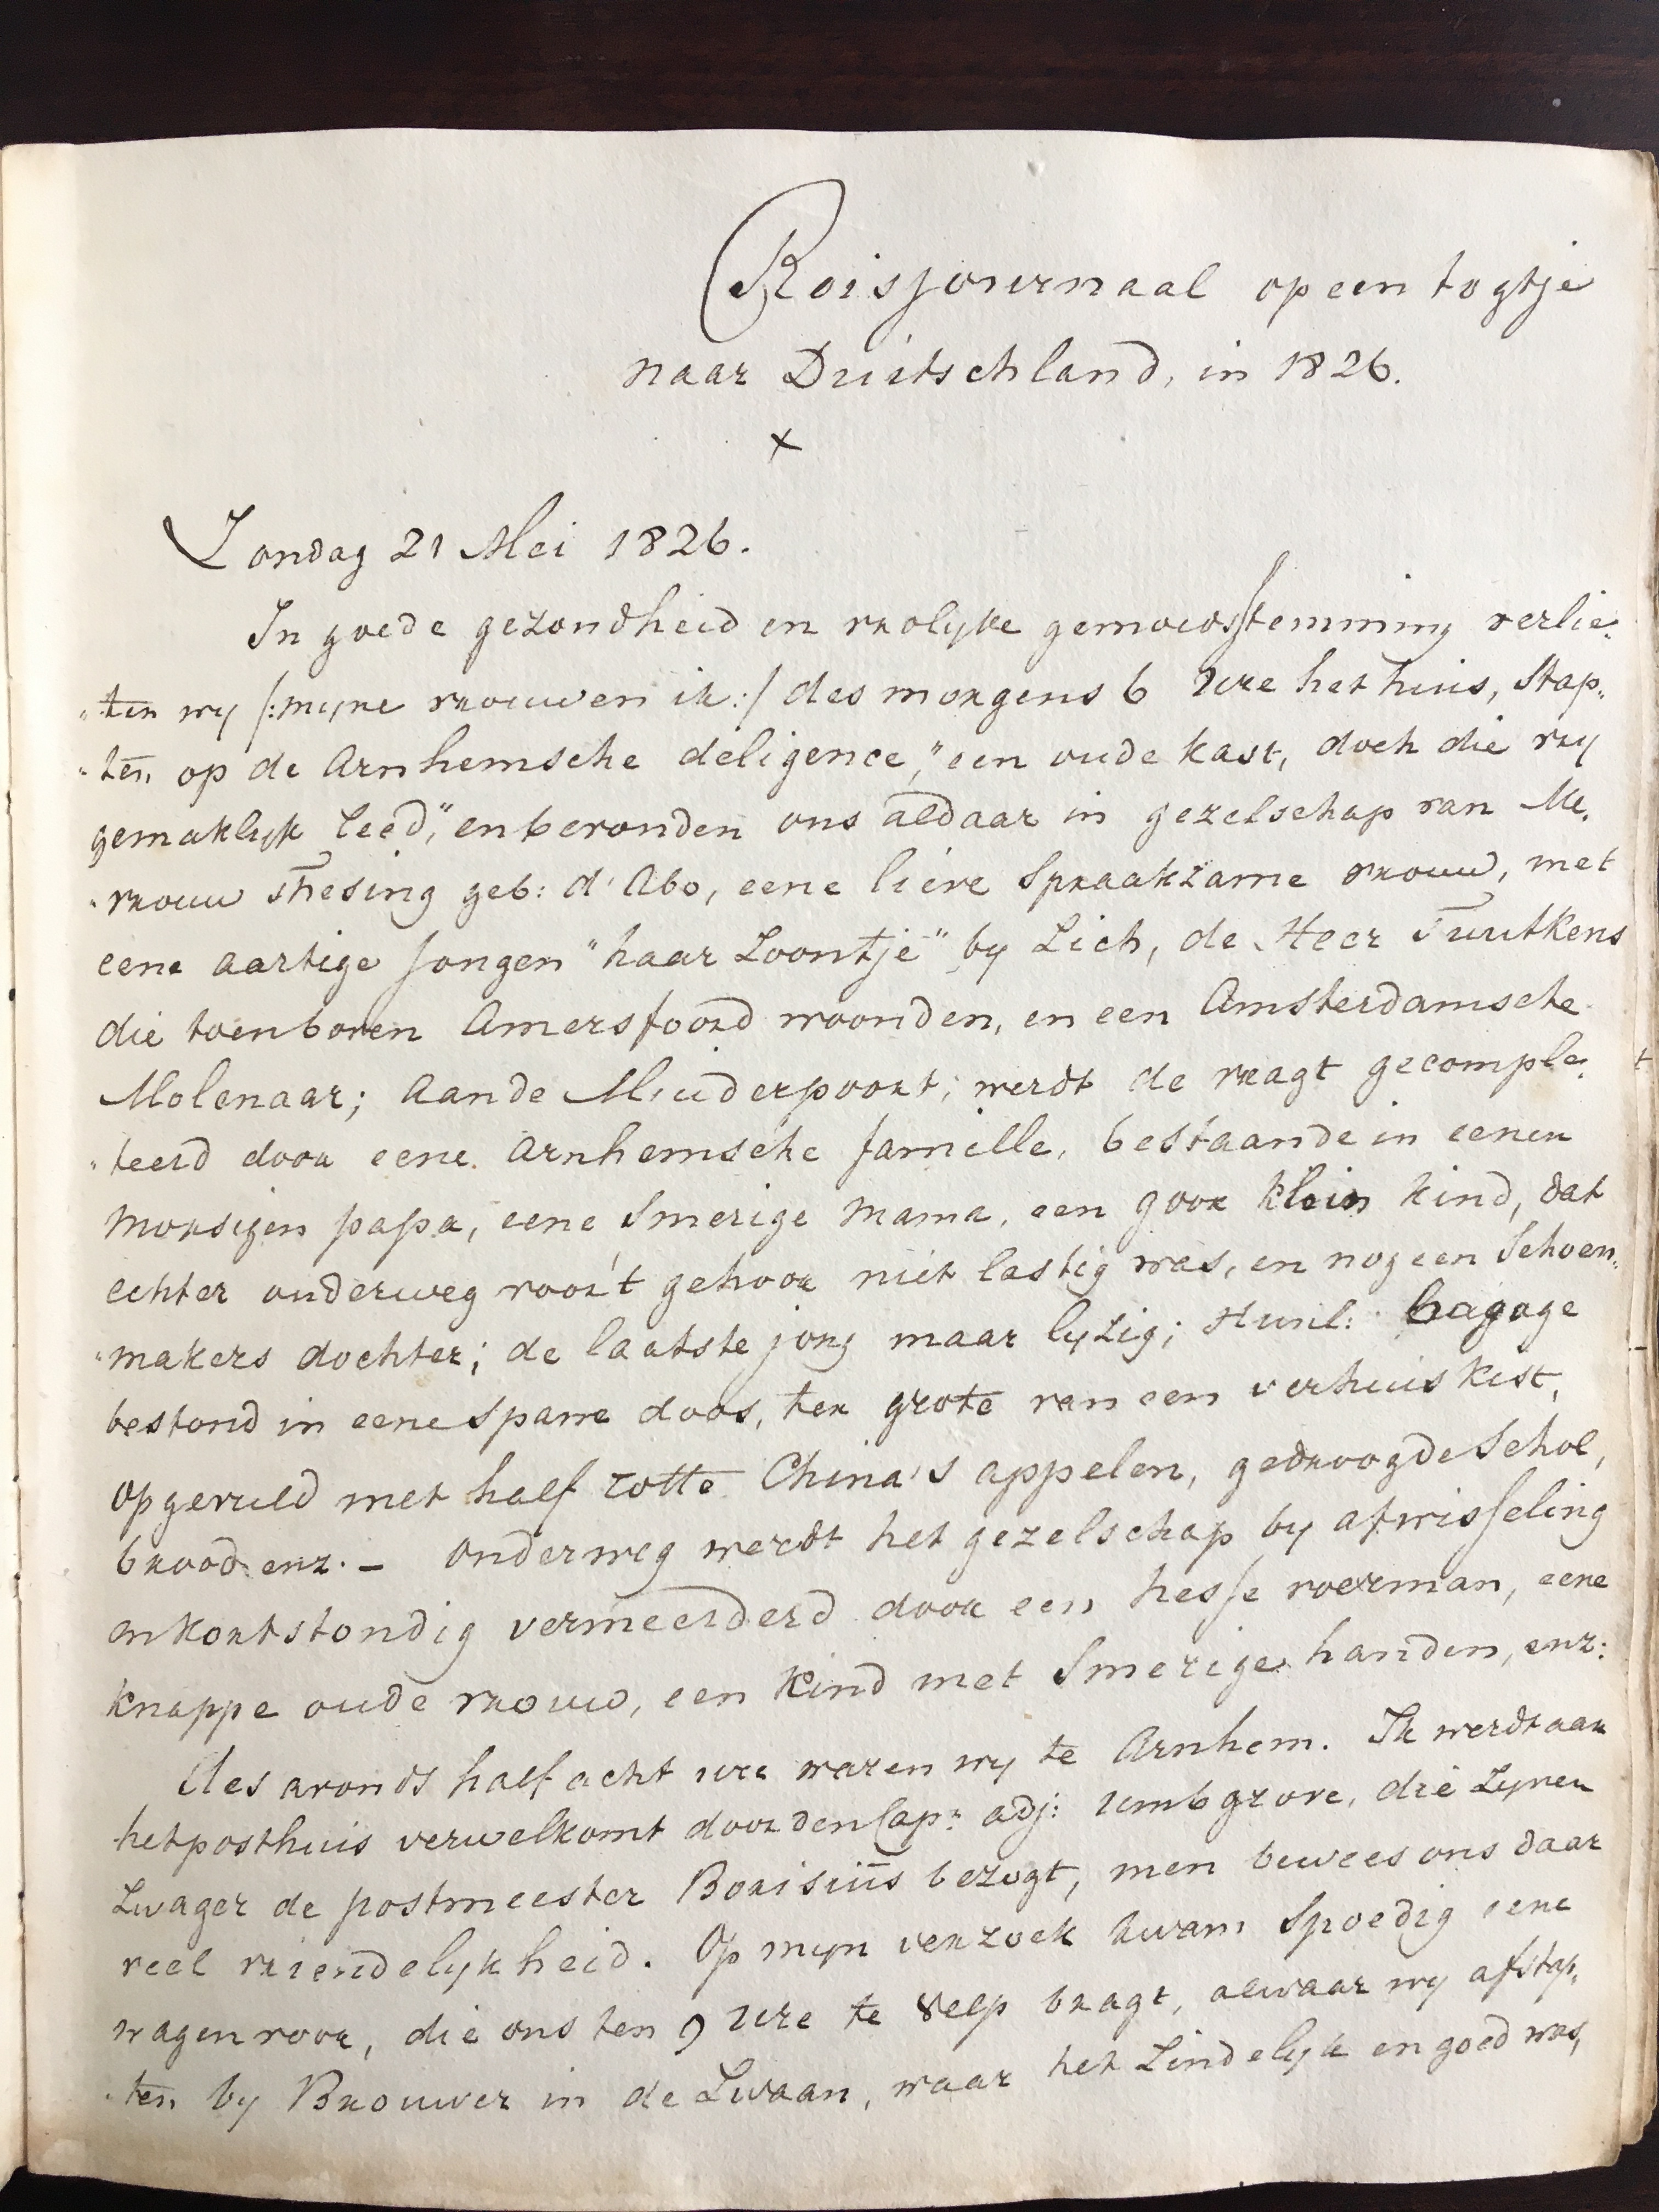 Reisjournaal op een togtje
naar Duitschland, in 1826.
x
Zondag 21 Mei 1826.
In goede gezondheid en vrolyke gemoedsstemming verlie„
„ten wy /:myne vrouw en ik:/ des morgens 6 Ure het huis, Stap„
„ten op de Arnhemsche deligence, "een oude kast, doch die vry
gemaklyk reed," en bevonden ons aldaar in gezelschap van Me„
„vrouw Thesing geb: d'Abo, eene lieve Spraakzame vrouw, met
eene aartige Jongen "haar Loontje" by Zich, de Heer Tuutkens
die toen boven Amersfoord woonden, en een Amsterdamsche
Molenaar; aan de Muiderpoort, werdt de vragt gecomple„
„teerd door eene Arnhemsche famille, bestaande in eenen
morsigen papa, eene Smerige mama, een goor klein kind, dat
echter onderweg voor 't gehoor niet lastig was, en nog een Schoen„
„makers dochter; de laatste jong maar lyzig; Hunl: bagage
bestond in eene Spane doos, ter grote van een verhuis kist,
opgevuld met half rotte China's appelen, gedroogde Schol,
brood enz. – onderweg werdt het gezelschap by afwisseling
en kortstondig vermeerderd door een hesse voerman, eene
knappe oude vrouw, een kind met Smerige handen, enz:
des avonds half acht ure waren wy te Arnhem. Ik werdt aan
het posthuis verwelkomt door den Capn adj: Umbgrove, die Zynen
Zwager de postmeester Borisius bezogt, men bewees ons daar
veel vriendelykheid. Op myn verzoek kwam Spoedig eene
wagen voor, die ons ten 9 Ure te Velp bragt, alwaar wy afstap„
„ten by Brouwer in de Zwaan, waar het Zindelyk en goed was,